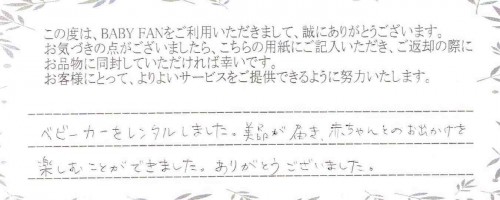 この度は、BABY FANをご利用いただきまして、誠にありがとうございます。
お気づきの点がございましたら、こちらの用紙にご記入いただき、ご返却の際に
お品物に同封していただければ幸いです。
お客様にとって、よりよいサービスをご提供できるように努力いたします。
ベビーカーをレンタルしました。美品が届き、赤ちゃんとのお出かけを
楽しむことができました。ありがとうございました。